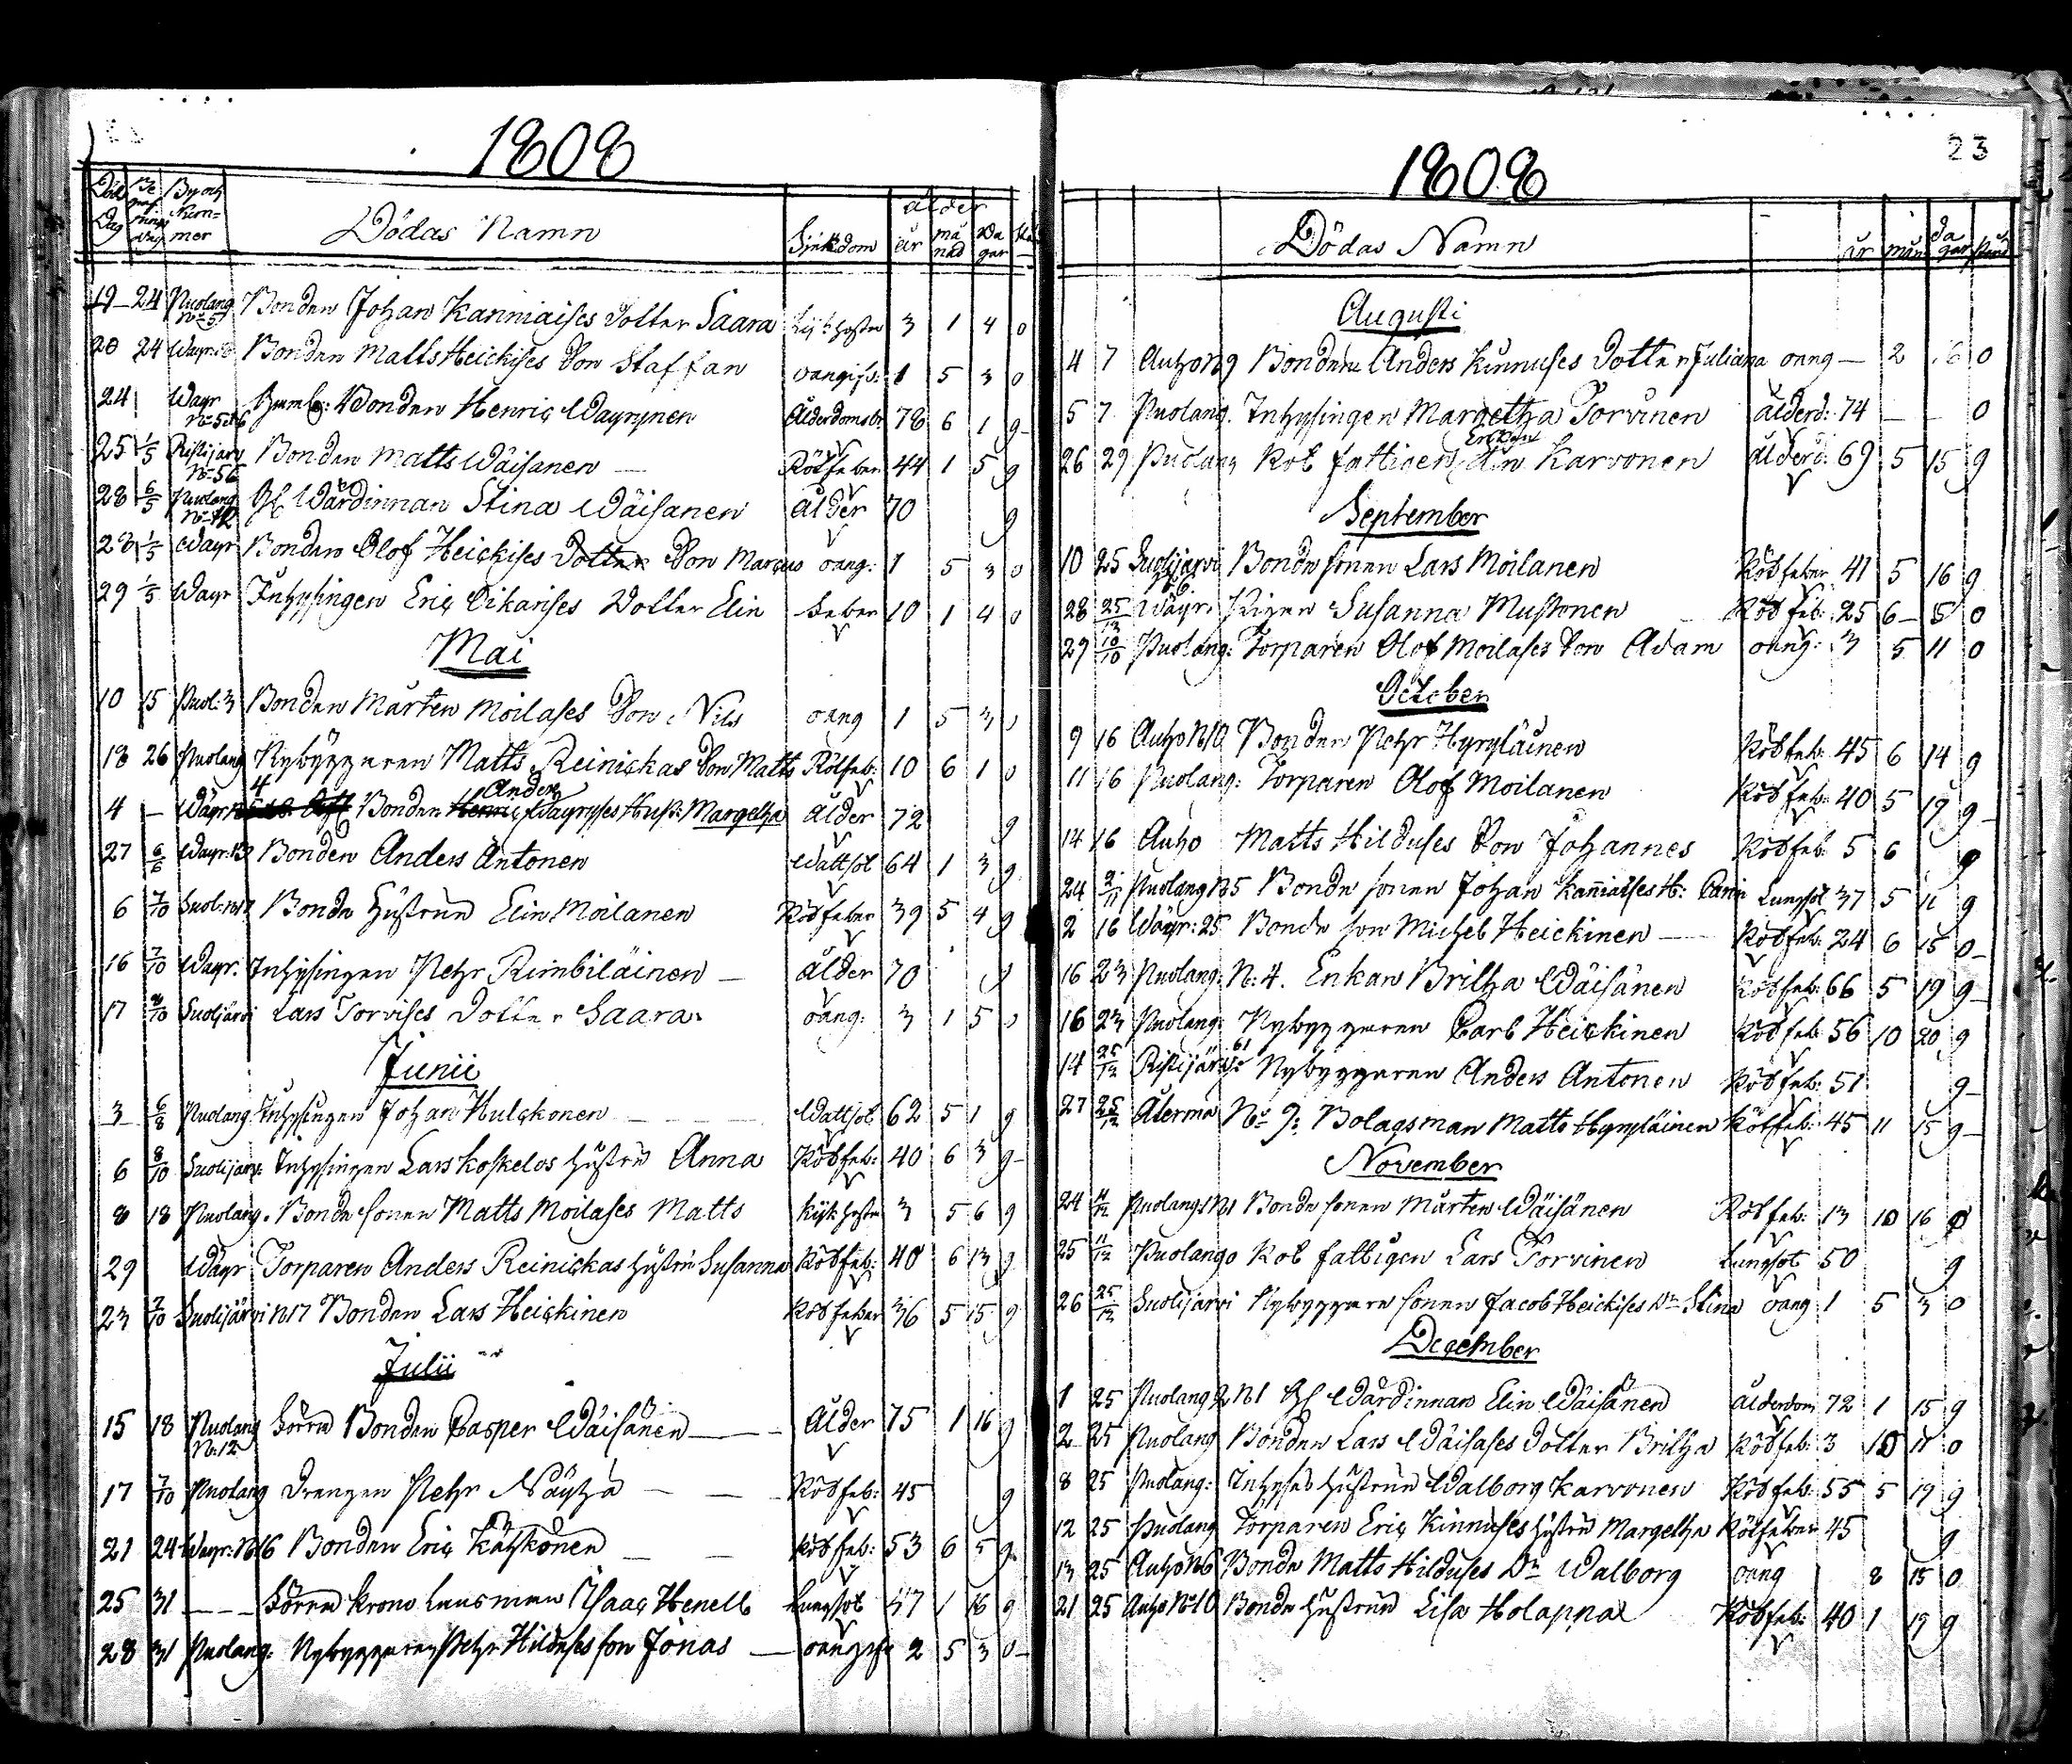 1808
Död Dag
Be graf nings dag
By och Num- mer
Dödas Namn
Sjukdom
ålder
år
må nad
Da gar
19 24 Puolang No 5 Bonden Johan Kanniaises Dotter Saara Kijkhosta 3 1 4 0
20 24 Wayr: Bonden Matts Heickises Son Staffan oangifv: 1 5 3 0
24 Wayr No 5 et 6 Bonden Henric Wayrynen Ålderdomsbr 78 6 1 g
25 1/5 Ristijarv No 56 Bonden Matts Wäisanen Rötfeber 44 1 5 g
28 6/5 Puolang No 12 Gl Wärdinnan Stina Wäisanen ålder 70 g
28 1/5 Wayr Bonden Olof Heickises Dotter Son Marcus oang: 1 5 3 0
29 1/5 Wayr Inhysingen Eric Oikarises Dotter Elin feber 10 1 4 0
Mai
10 15 Puol: 3 Bonden Mårten Moilases Son Nils oang 1 5 3 0
18 26 Puolang Nybyggaren Matts Reinickas Son Matts Rötfeb: 10 6 1 0
4 — Wäyr 4 Bonden Henric Anders Wayryses Hust: Margetha ålder 72 g
27 6/6 Wayr: Bonden Anders Antonen Wattsot 64 1 3 g
6 7/10 Suol: N17 Bonde Hustrun Elin Moilanen Rötfeber 39 5 4 g
16 7/10 Wayr. Inhysingen Pehr Rimbiläinen — ålder 70 g
17 8/10 Suolijärvi Lars Torvises Dotter Saara oang: 3 1 5 0
Junii
3 6/8 Puolang. Inhysingen Johan Hulckonen Wattsot 62 5 1 g
6 8/10 Suolijarv: Inhysingen Lars Koskelos hustru Anna Rötfeb: 40 6 3 g
8 18 Puolang. Bonde sonen Matts Moilases Matts Kijkhosta 3 5 6 g
29 Wäyr Torparen Anders Reinickas hustru Susanna Rötfeb: 40 6 13 g
23 7/10 Suolijärvi N17 Bonden Lars Heickinen Rötfeber 36 5 15 g
Julii
15 18 Puolang No. 12 Förra Bonden Casper Wäisänen ålder 75 1 16 g
17 7/10 Puolang Drengen Pehr Näyhä Rötfeb: 45 g
21 24 Wayr: N16 Bonden Eric Kätkönen Rötfeb: 53 6 5 g
25 31 — Förra Krono Lansman Isaac Henell Lungsot 47 1 16 g
28 31 Puolang: Nybyggaren Pehr Hilduses son Jonas — oangifv 2 5 3 0
23
1808
Dödas Namn
år
mån
da gar
Augusti
4 7 Auho N9 Bonden Anders Kinnuses Dotter Juliana oang — 2 6 0
5 7 Puolang. Inhysingen Margetha Torvinen ålderd: 74 — — 0
26 29 Puolang Rot fattigen Enkan Karvonen ålderd: 69 5 15 g
September
10 25 Suolijarvi Bonde sonen Lars Moilanen Rötfeber 41 5 16 g
28 25/12 Wäyr. Pigan Susanna Mustonen Rötfeb: 25 6 5 0
29 10/10 Puolang: Torparen Olof Moilases Son Adam oang: 3 5 11 0
October
9 16 Auho N10 Bonden Pehr Hyryläinen Rötfeb: 45 6 14 g
11 16 Puolang: Torparen Olof Moilanen Rötfeb: 40 5 19 g
14 16 Auho Matts Hilduses Son Johannes Rötfeb: 5 6 g
24 2/11 Puolang N5 Bonde sonen Johan Kanniaises H: Carin Lungsot 37 5 11 g
2 16 Wäyr: 25 Bonde son Michel Heickinen Rötfeb: 24 6 15 0
16 23 Puolang: N: 4. Enkan Britha Wäisänen Rötfeb: 66 5 19 g
16 23 Puolang: Nybyggaren Carl Heickinen Rötfeb: 56 10 20 g
14 25/12 Ristijärvi 61 Nybyggaren Anders Antonen Rötfeb: 51 g
27 25/12 Alerma No 9: Bolagsman Matts Hyryläinen Rötfeb: 45 11 15 g
November
24 11/12 Puolang: N1 Bonde sonen Mårten Wäisänen Rötfeb: 13 10 16 0
25 11/12 Puolango Rot fattigen Lars Torvinen Lungsot 50 g
26 25/12 Suolijarvi Nybyggare sonen Jacob Heickises Dr Stina oang 1 5 3 0
December
1 25 Puolang N1 Gl Wärdinnan Elin Wäisänen ålderdom 72 1 15 g
2 25 Puolang Bonden Lars Wäisases Dotter Britha Rötfeb: 3 10 11 0
8 25 Puolang: Inhyses hustrun Walborg Karvonen Rötfeb: 55 5 19 g
12 25 Puolang Torparen Eric Kinnuses hustru Margetha Rötfeber 45 g
13 25 Auho N6 Bonde Matts Hilduses Dr Walborg oang 8 15 0
21 25 Auho No 10 Bonde hustrun Lisa Holappa Rötfeb: 40 1 19 g